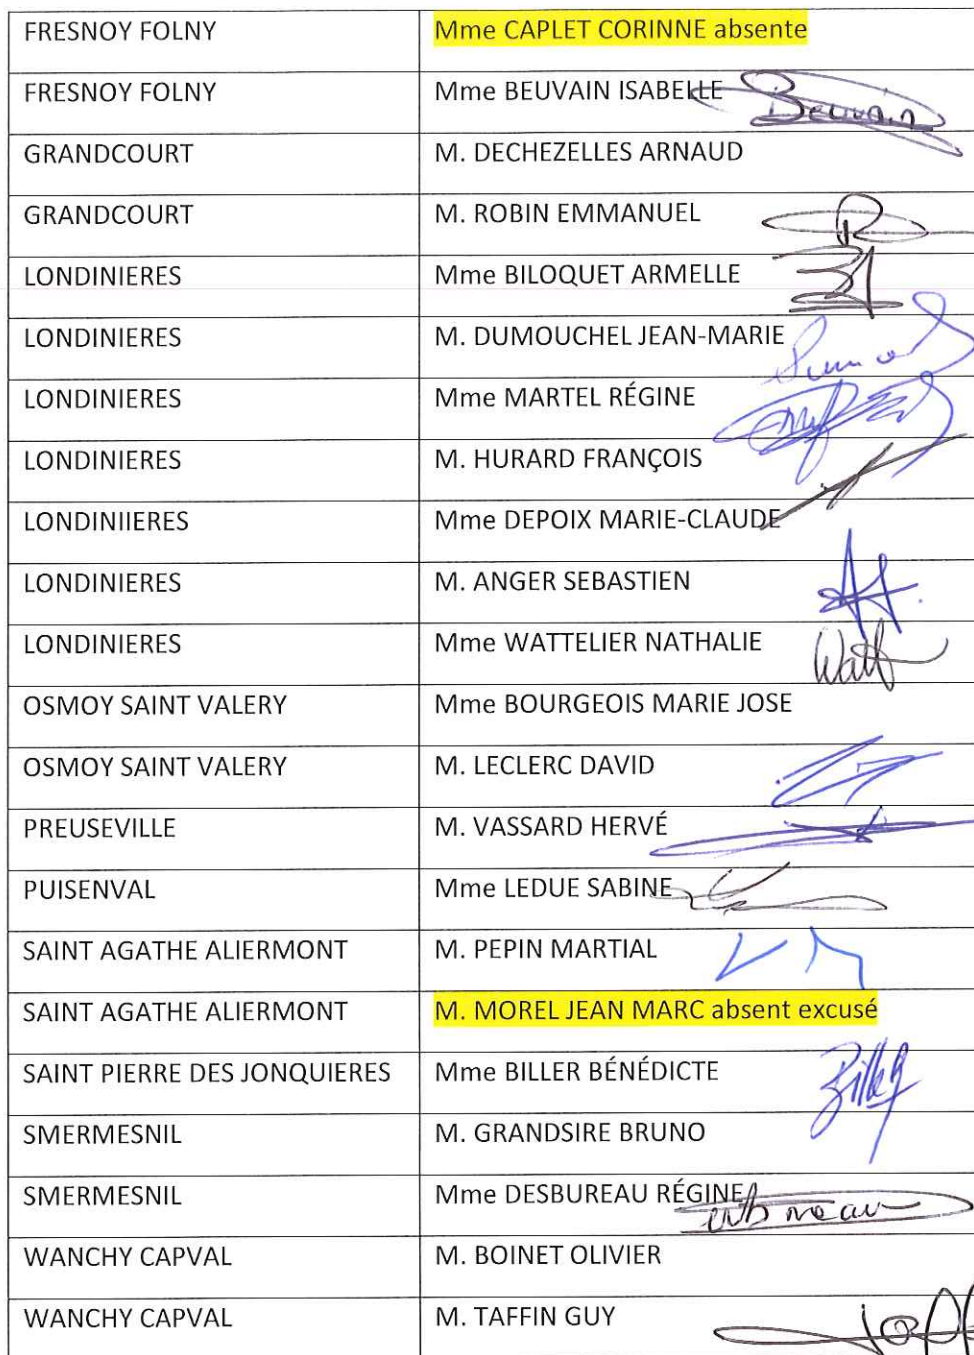 FRESNOY FOLNY Mme CAPLET CORINNE absente
FRESNOY FOLNY Mme BEUVAIN ISABELLE Beuvain
GRANDCOURT M. DECHEZELLES ARNAUD
GRANDCOURT M. ROBIN EMMANUEL
LONDINIERES Mme BILOQUET ARMELLE
LONDINIERES M. DUMOUCHEL JEAN-MARIE
LONDINIERES Mme MARTEL RÉGINE
LONDINIERES M. HURARD FRANÇOIS
LONDINIIERES Mme DEPOIX MARIE-CLAUDE
LONDINIERES M. ANGER SEBASTIEN
LONDINIERES Mme WATTELIER NATHALIE
OSMOY SAINT VALERY Mme BOURGEOIS MARIE JOSE
OSMOY SAINT VALERY M. LECLERC DAVID
PREUSEVILLE M. VASSARD HERVÉ
PUISENVAL Mme LEDUE SABINE
SAINT AGATHE ALIERMONT M. PEPIN MARTIAL
SAINT AGATHE ALIERMONT M. MOREL JEAN MARC absent excusé
SAINT PIERRE DES JONQUIERES Mme BILLER BÉNÉDICTE
SMERMESNIL M. GRANDSIRE BRUNO
SMERMESNIL Mme DESBUREAU RÉGINE
WANCHY CAPVAL M. BOINET OLIVIER
WANCHY CAPVAL M. TAFFIN GUY